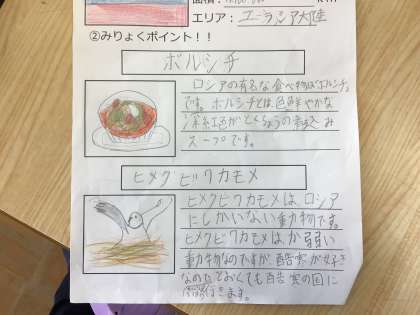 面積：
km
エリア：ユーラシア大陸
②みりょくポイント！！
ボルシチ
ロシアの有名な食べ物はボルシチ
です。ボルシチとは、色鮮やかな
深紅色がとくちょうの煮込み
スープです。
ヒメクビワカモメ
ヒメクビワカモメは、ロシア
にしかいない動物です。
ヒメクビワカモメはか弱い
動物なのですが、酷寒が好き
なのでとおくても酷寒の国に
行きます。